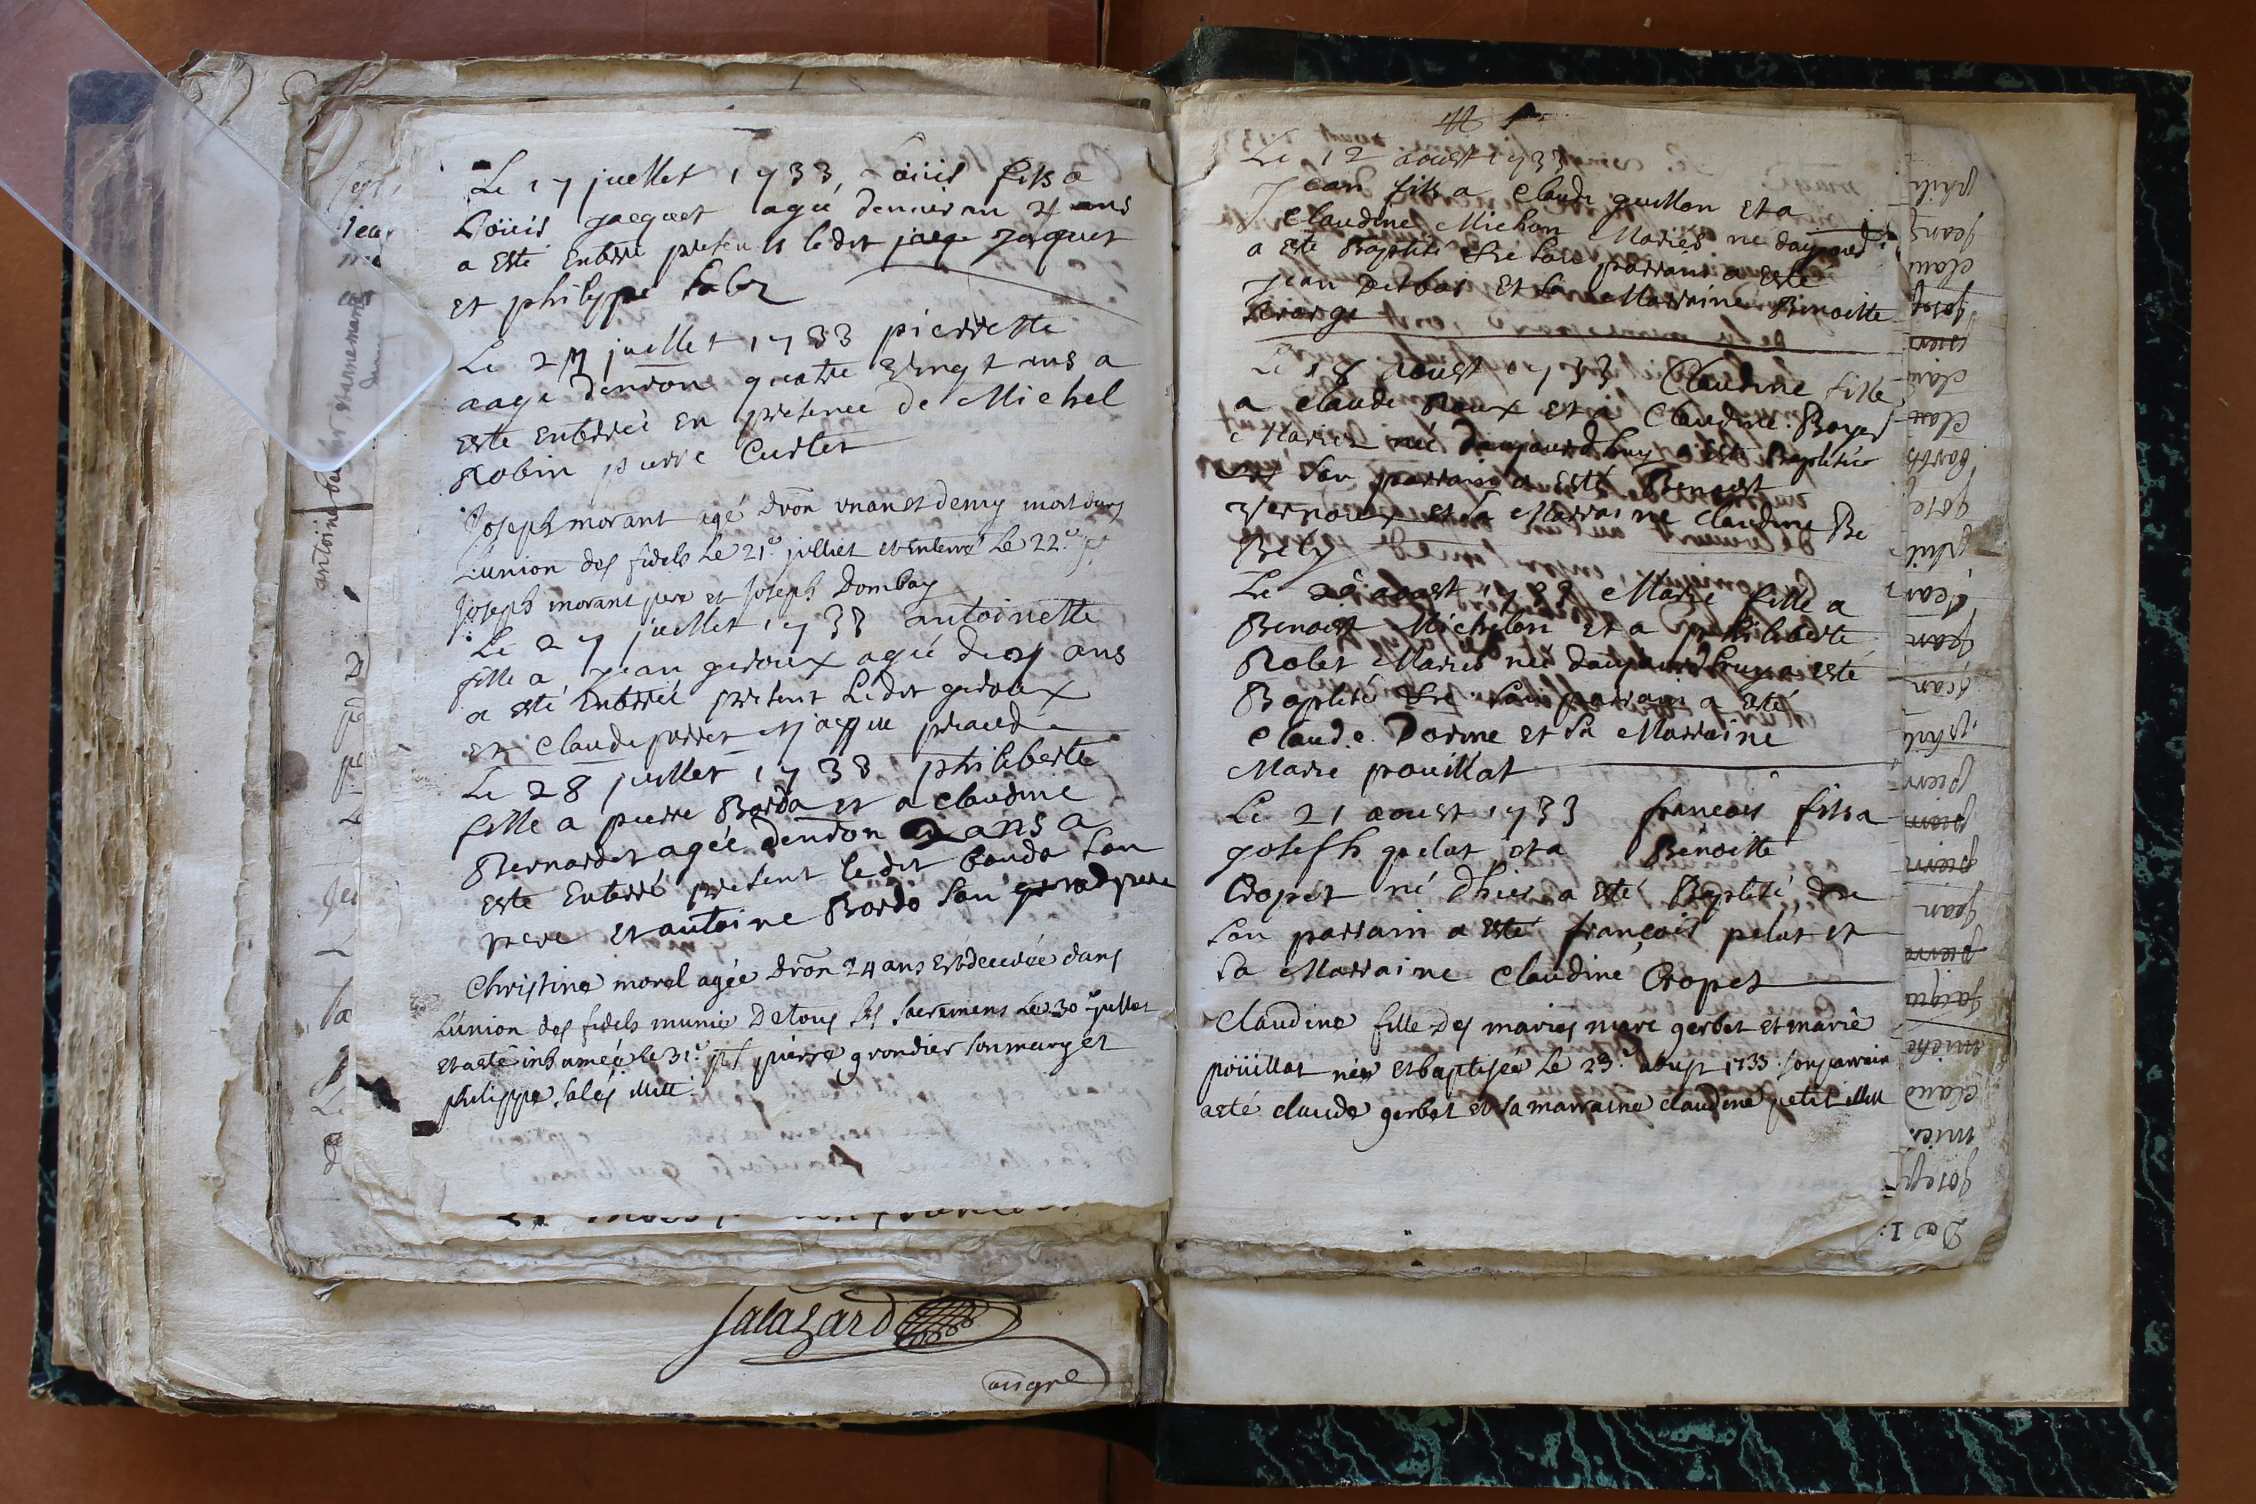 Le 17 juellet 1733, Loüis fils a
Loüis jacquet agé denuiron 4 ans
a esté Enterré present ledit jaque Jaquet
et philippe Salez
Le 21 juellet 1733 pierrette
aagé denron quatre vingt ans a
esté enterréé En presence de Michel
Robin pierre Curlet
Joseph morant agé dron un an et demy mort dans
L'union des fidels Le 21e julliet et Enterré Le 22e pt
Joseph morant pere et Joseph Dombay
Le 27 juellet 1733 antoinette
fille a Jean giroux agéé de 4 ans
a esté Enterréé present Ledit giroux
et Claude perret et jaque
Le 28 juellet 1733 philiberte
fille a pierre Borda et a claudine
Bernardet agéé denron 2 ans a
esté Enterré present ledit borda son
pere et antoine Bordo son grandpere
Christine morel agée dron 24 ans est decedée dans
L'union des fidels munie De tous ses sacremens Le 30e juillet
et a esté inhumée le 31e pt pierre grondier son mary et
philippe Salés
Le 12 aoust 1733
Jean fils a Claude guillon et a
Claudine Michon Mariés ne daujourd
a esté Baptisé son parrain a esté
Jean et sa Marraine Benoitte
Le 18 aoust 1733 Claudine fille
a Claude Roux et a Claudine Boyer
Mariez néé daujourdhuy a esté Baptiséé
son parrain a esté Benoist
Vernoux et sa Marraine Claudine Be
Bely
Le 20 aoust 1733 Marie fille a
Benoist Michelon et a philiberte
Robet Mariés néé daujourdhuy a esté
Baptiséé son parrain a esté
Claude Dorine et sa Marraine
Marie pouillat
Le 21 aoust 1733 francois fils a
joseph pelut et a Benoitte
Cropet né dhier a esté Baptisé
son parrain a esté françois pelut et
sa Marraine Claudine Cropet
Claudine fille des mariés marc gerbet et marie
poüillat née et baptisée Le 23e aoust 1733 son parrain
a esté claude gerbet et sa marraine claudine petit
Salazard
antoine
phili
Jean
clau
clau
jose
phili
jean
jean
jean
phili
pierr
pierr
jean
pierre
Jaqu
miche
claud
Joseph